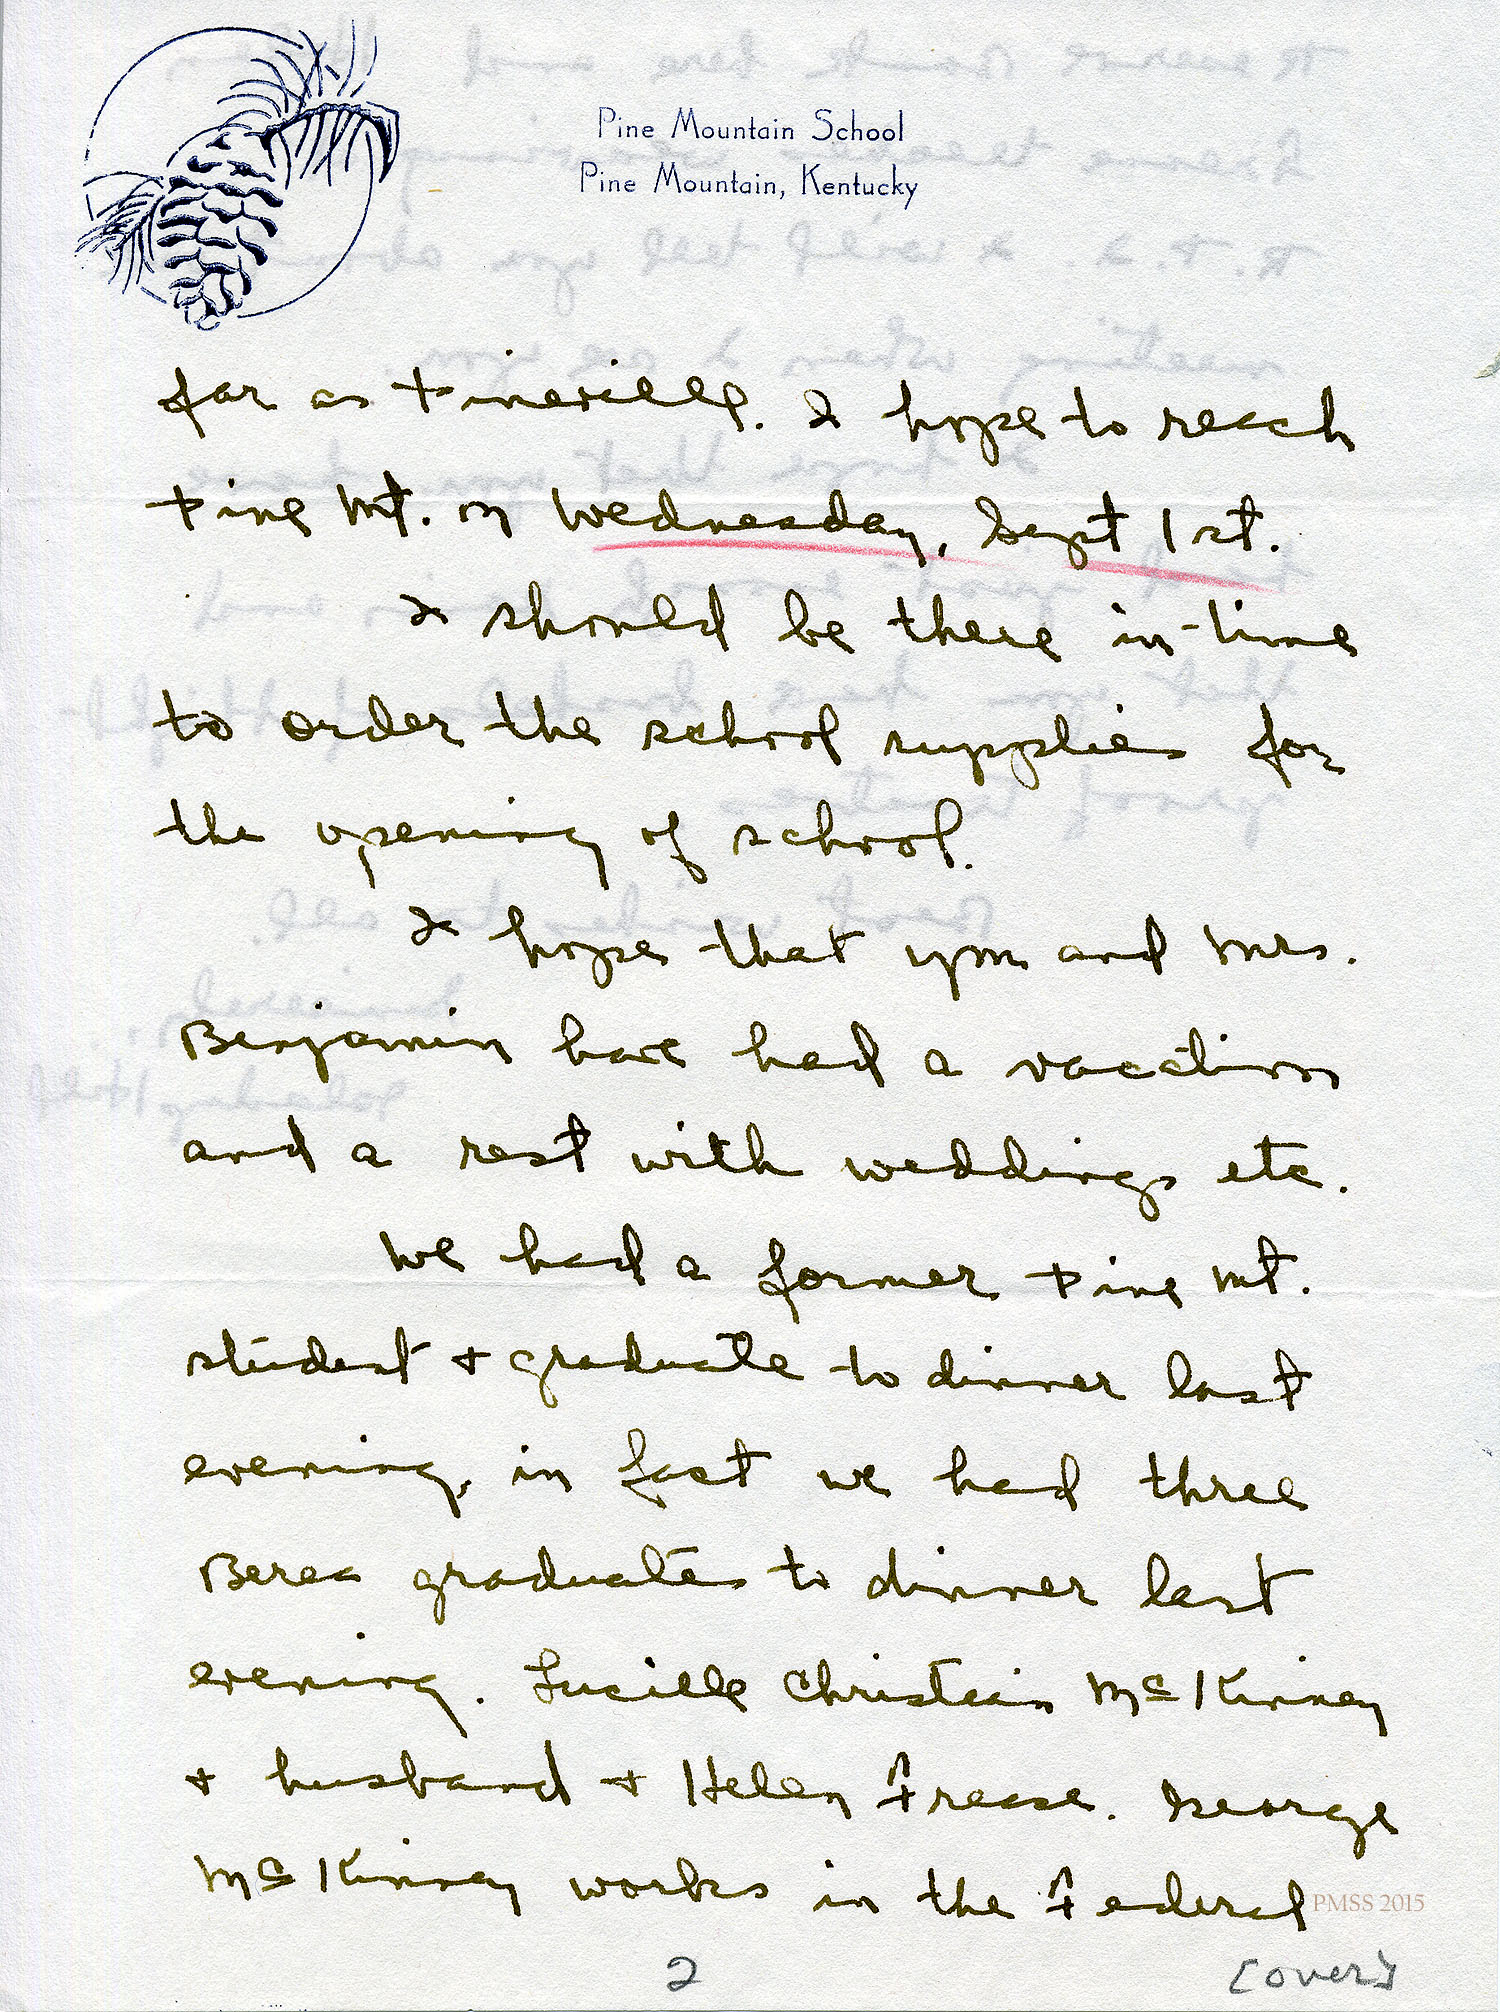 Pine Mountain School
Pine Mountain, Kentucky
far as Pineville. I hope to reach
Pine Mt. on Wednesday, Sept 1st.
I should be there in-time
to order the school supplies for
the opening of school.
I hope that you and Mrs.
Benjamin have had a vacation
and a rest with weddings etc.
We had a former Pine Mt.
student + graduate to dinner last
evening, in fact we had three
Berea graduates to dinner last
evening. Lucille Christian McKinney
+ husband + Helen Frease. George
McKinney works in the Federal
PMSS 2015
2
[over]